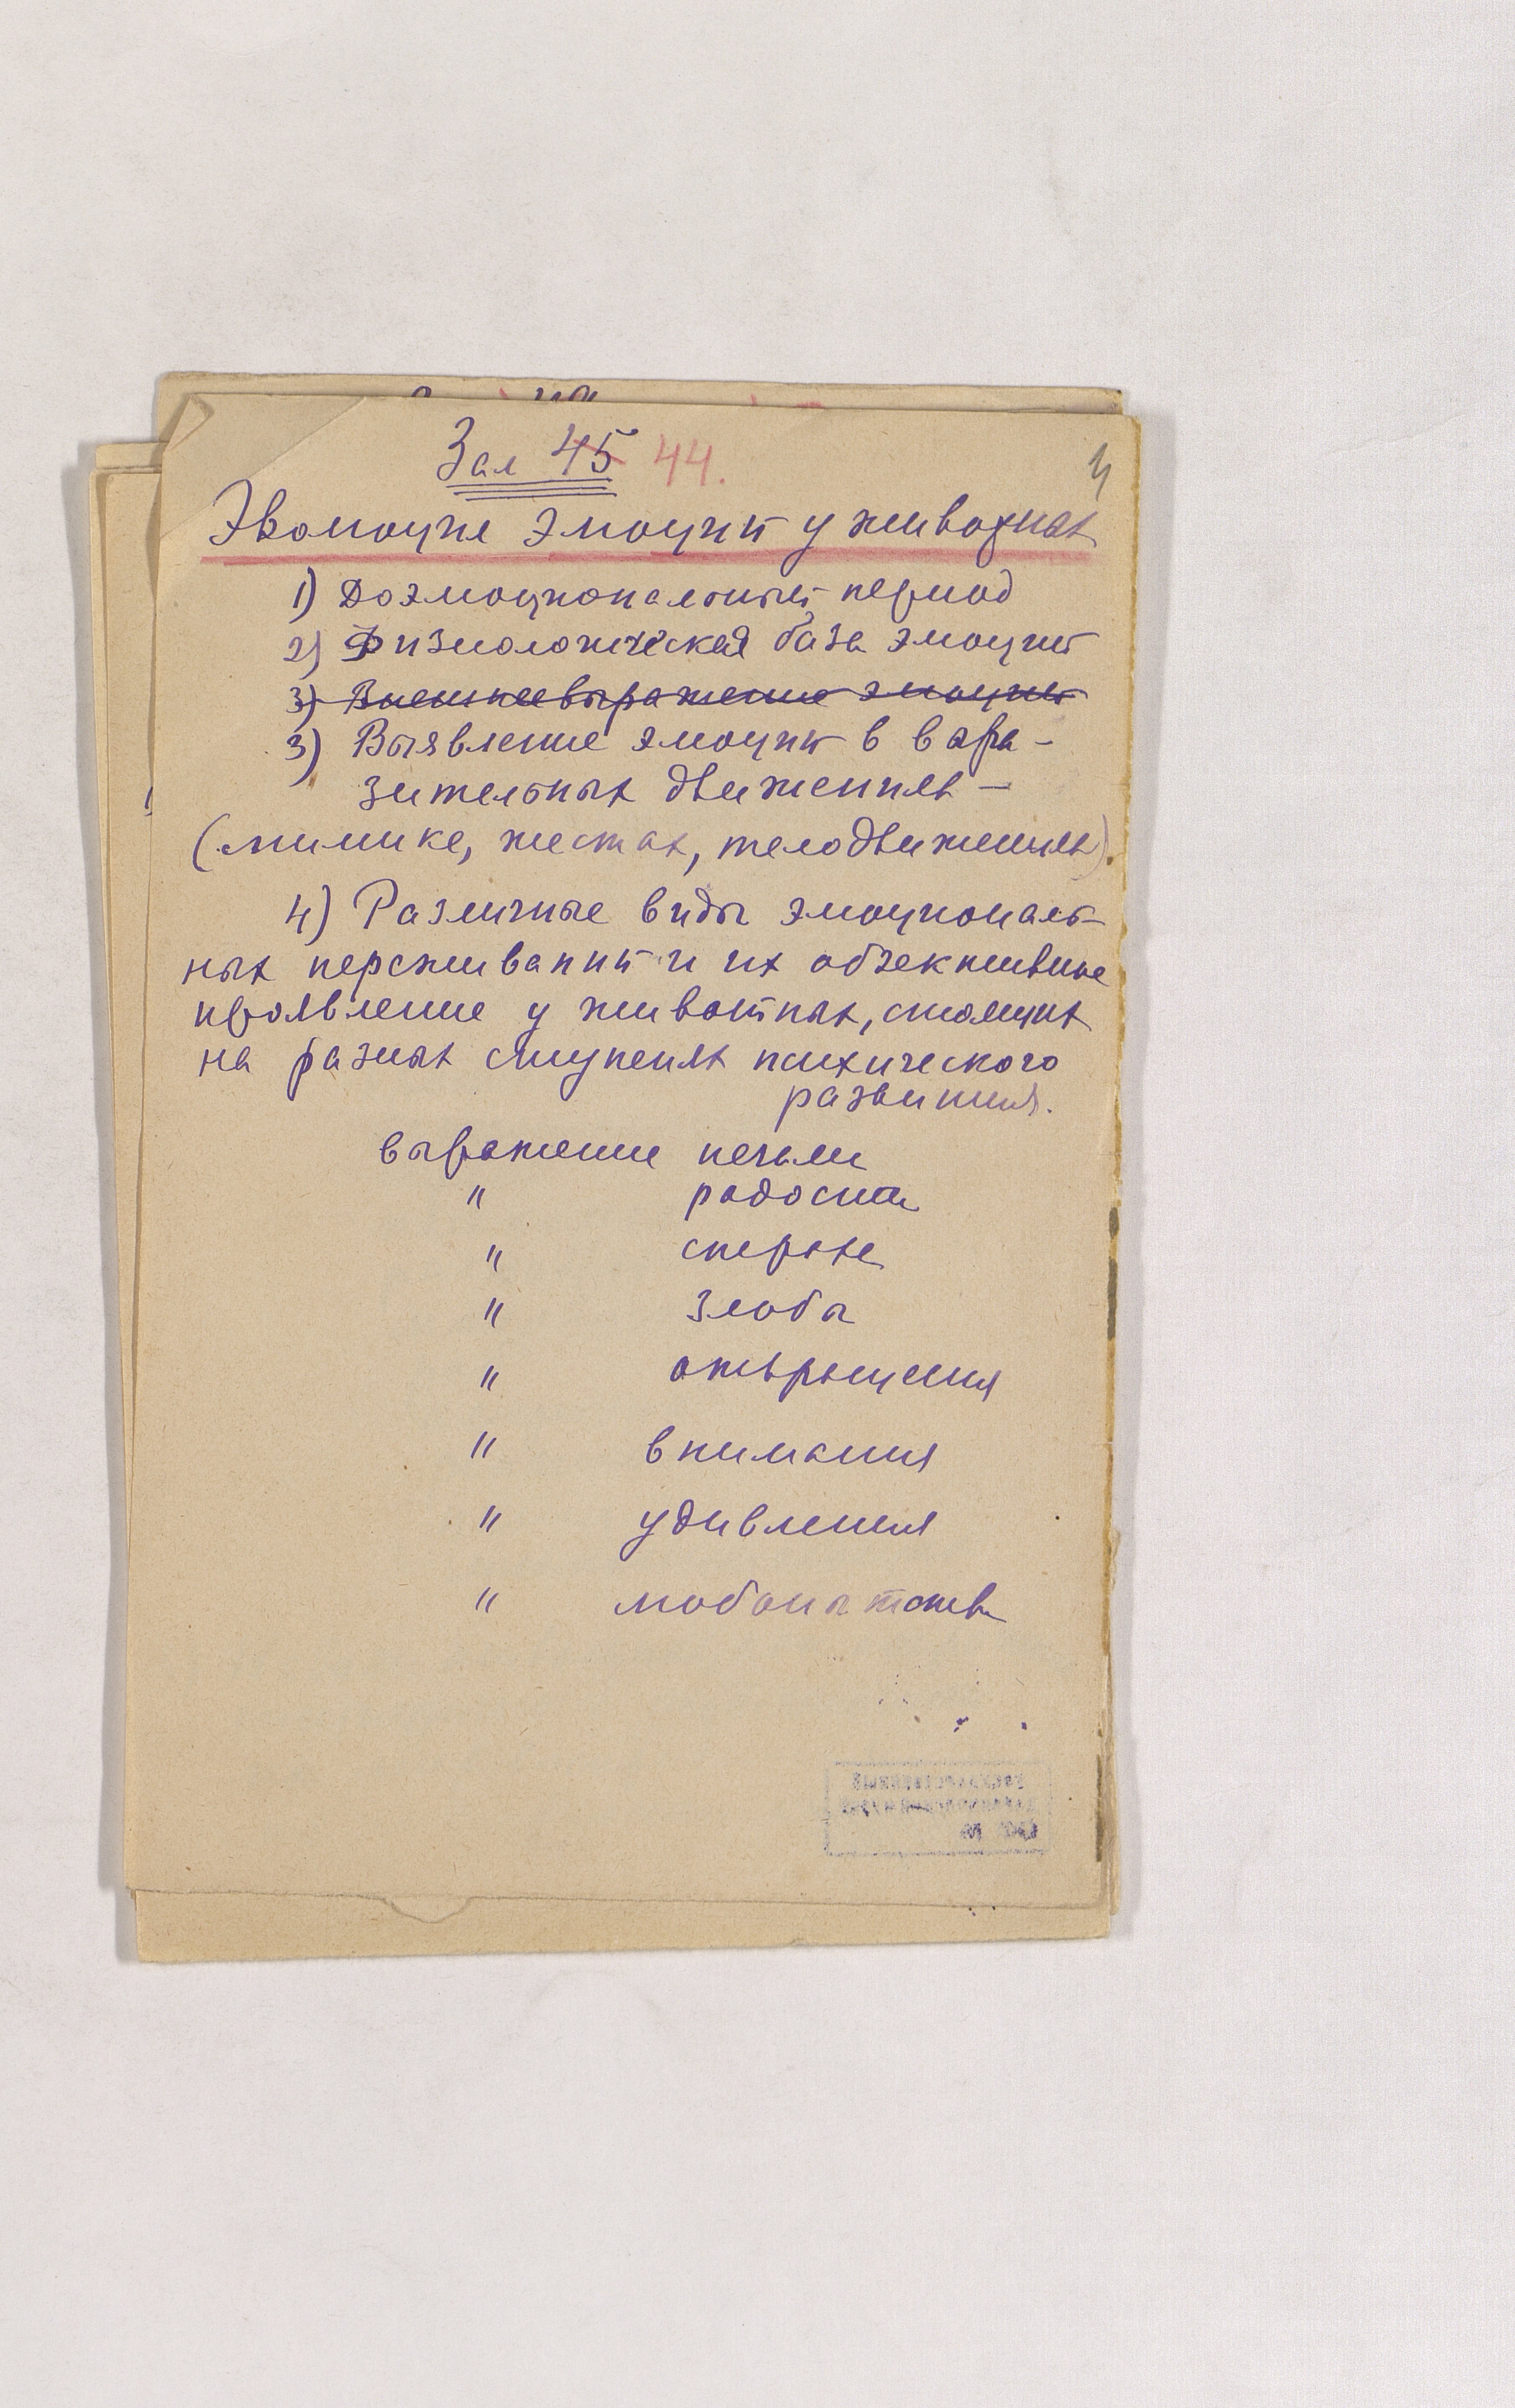 Зал 45 44.
4
Эволюция эмоций у животных
1) Доэмоциональный период
2) Физиологическая база эмоций
3) Внешнее выражение эмоций
3) Выявление эмоций в выра-
зительных движениях -
(мимике, жестах, телодвижениях).
4) Различные виды эмоциональ-
ных переживаний и их объективные
проявление у животных, стоящих
на разных ступенях психического
развития.
выражение печали
" радости
" страха
" злобы
" отвращения
" внимания
" удивления
" любопытства